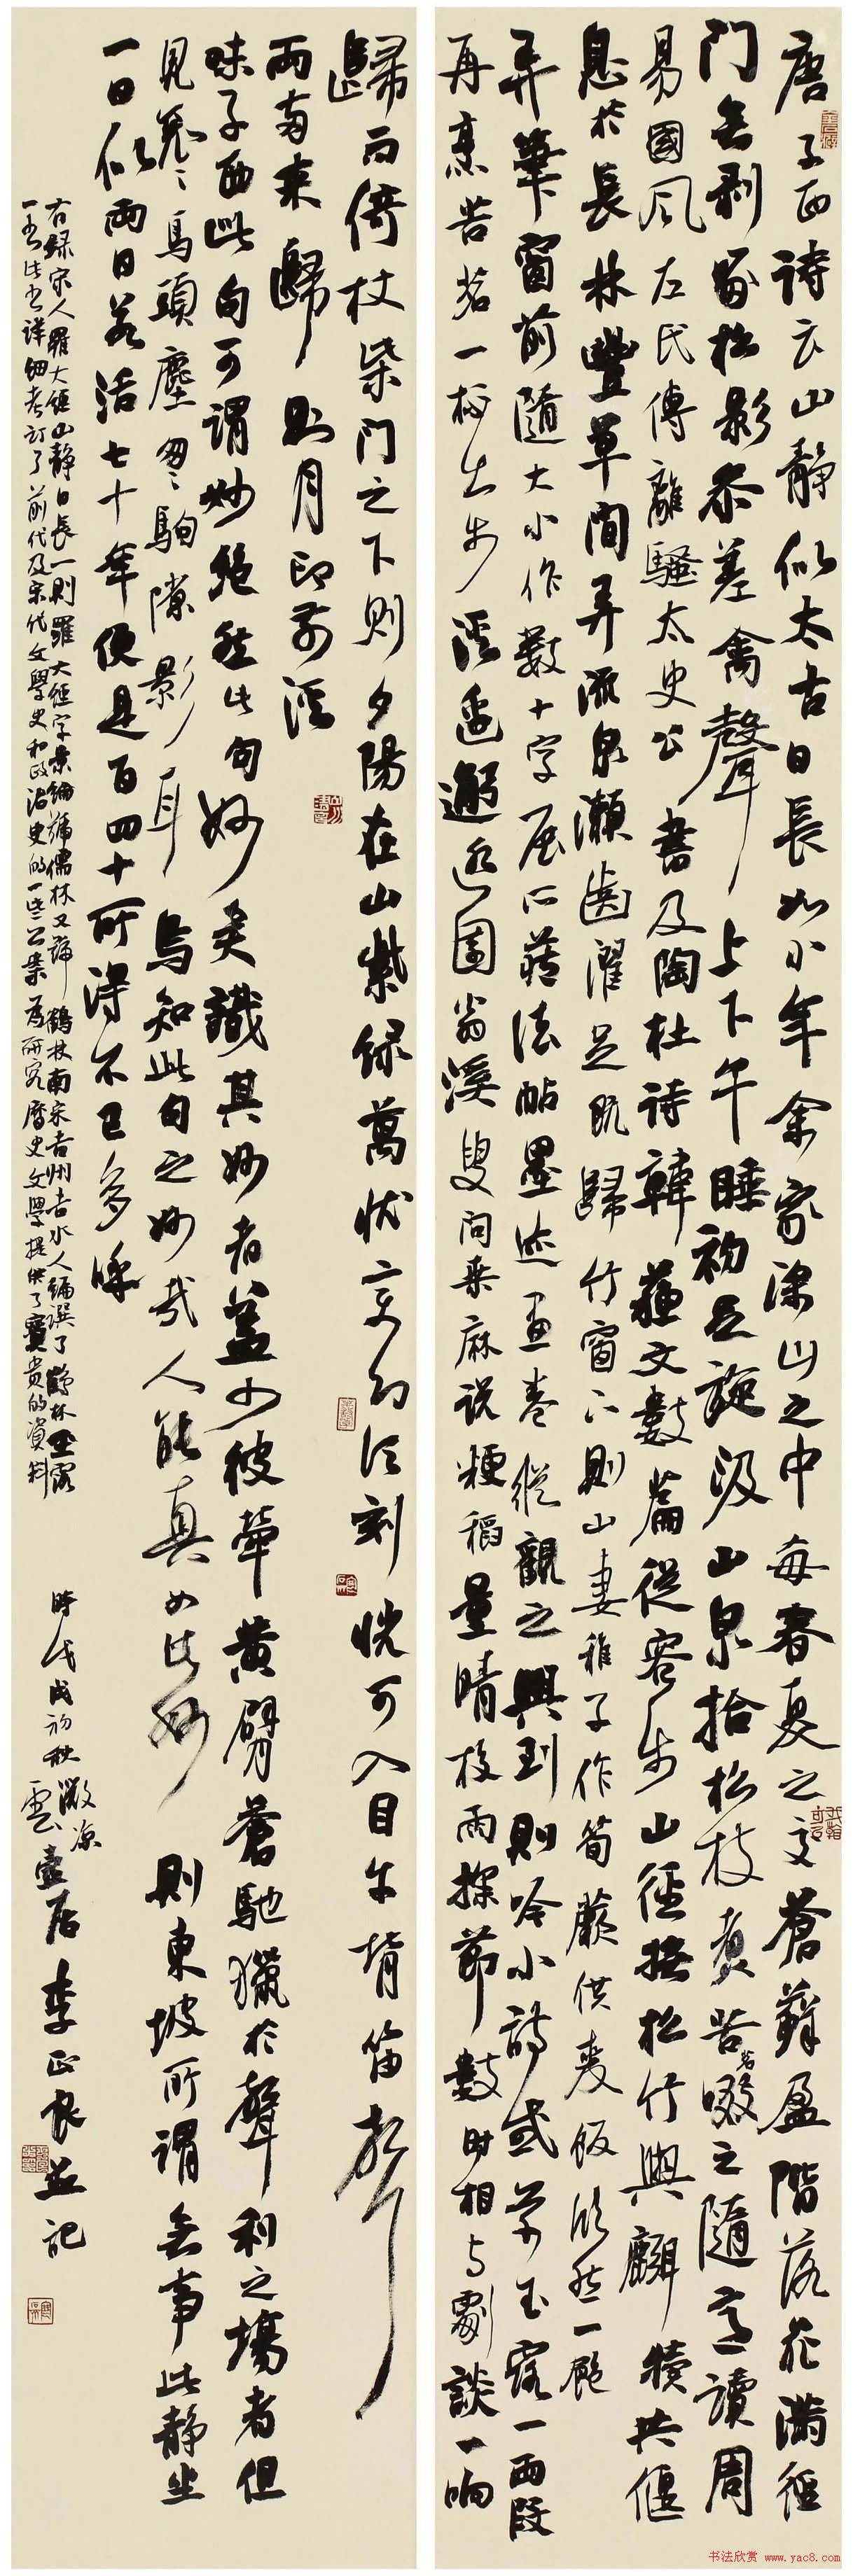 唐子西詩云山靜似太古日長如小年余家深山之中每春夏之交蒼蘚盈階落花滿徑
門無剥啄松影參差禽聲上下午睡初足旋汲山泉拾松枝煮苦茗啜之隨意讀周
易國風左氏傳離騷太史公書及陶杜詩韓蘇文數篇從容步山徑撫松竹與麛犢共偃
息於長林豐草間弄流泉漱齒濯足既歸竹窗下則山妻稚子作筍蕨供麦飯欣然一飽
弄筆窗前隨大小作數十字展所藏法帖墨迹畫卷縱觀之興到則吟小詩或草玉露一兩段
再烹苦茗一杯出步溪邊邂逅園翁溪叟問桑麻説粳稻量晴校雨探節數時相与劇談一晌
歸而倚杖柴門之下則夕陽在山紫綠萬状变幻頃刻恍可入目牛背笛聲
兩兩來歸則月印前溪
味子西此句可謂妙絶然此句妙矣識其妙者蓋少彼牽黄臂蒼馳獵於聲利之塲者但
見衮々馬頭塵匆々駒隙影耳烏知此句之妙哉人能真如此妙則東坡所謂無事此靜坐
一日似兩日若活七十年便是百四十所得不已多乎
右録宋人羅大經山静日長一則羅大經字景綸號儒林又號鶴林南宋吉州吉水人編撰了鶴林玉露
一書此書詳細考訂了前代及宋代文學史和政治史的一些公案為研究歷史文學提供了寶貴的資料
時戊戌初秋微凉
雲壺居李正良并記
书法欣赏 www.yac8.com